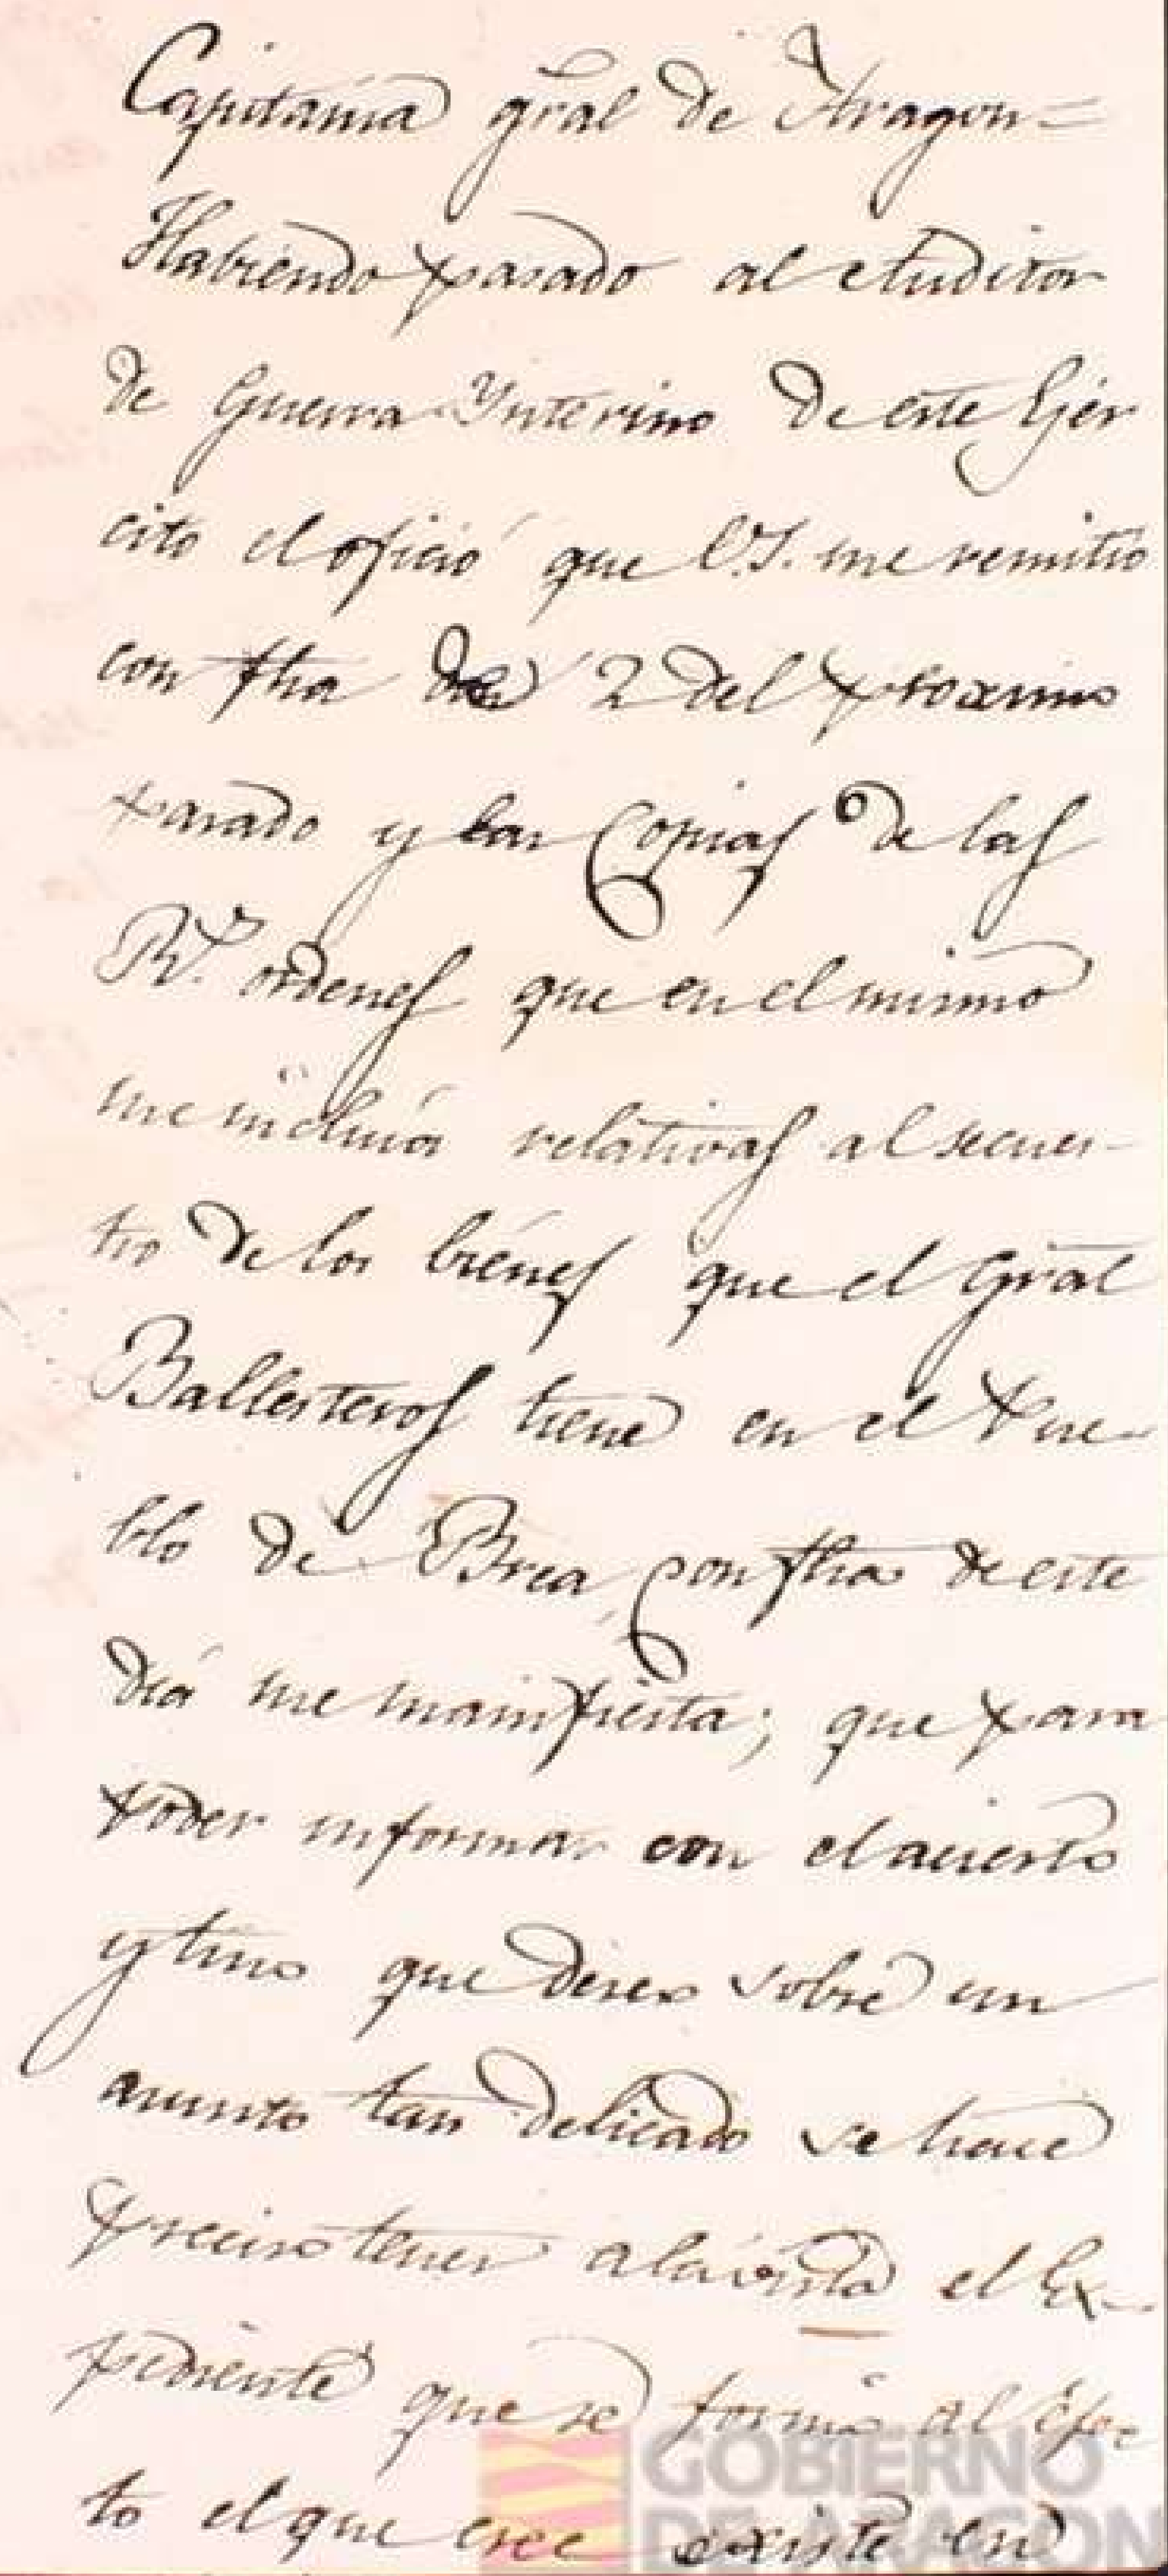 Capitanía gral de Aragon=
Habiendo pasado al Auditor
de Guerra Ynterino de este Ejér
cito el ofició que V.S. me remitió
con fha de 2 del proximo
pasado y las Copias de las
Rs. ordenes que en el mismo
me incluía relativas al secues-
tro de los biénes que el Gral
Ballesteros tiene en el Pue-
blo de Brea, con fha de este
diá me manifiesta; que para
poder informar con el acierto
y tino que deseo sobre un
asunto tan delicado se hace
preciso tener a la vista el Ex-
pediente que se formó al efec-
to el que cree existe en
GOBIERNO
DE ARAGON